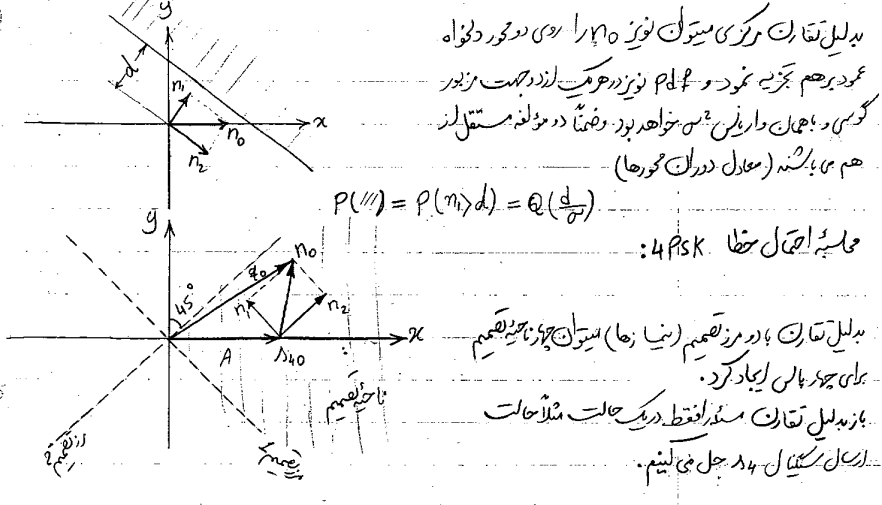 بدلیل تقارن مرکزی میتوان نویز n₀ را روی دو محور دلخواه
عمود برهم تجزیه نمود و pdf نویز در هر یک از دو جهت مزبور
گوسی و با همان واریانس σ² خواهد بود و ضمناً دو مؤلفه مستقل از
هم می باشند (معادل دوران محورها)
P(///) = P(n₁>d) = Q(d/σ)
محاسبهٔ احتمال خطا 4PSK:
بدلیل تقارن با دو مرز تصمیم (نیمسازها) میتوان چهار ناحیه تصمیم
برای چهار پالس ایجاد کرد.
باز بدلیل تقارن مسئله را فقط در یک حالت مثلاً حالت
ارسال سیگنال s₄ حل می کنیم.
y
d
n₁
n₀
x
n₂
y
45°
z₀
n₀
n₁
n₂
x
A
s₄₀
ناحیه تصمیم
مرز تصمیم 2